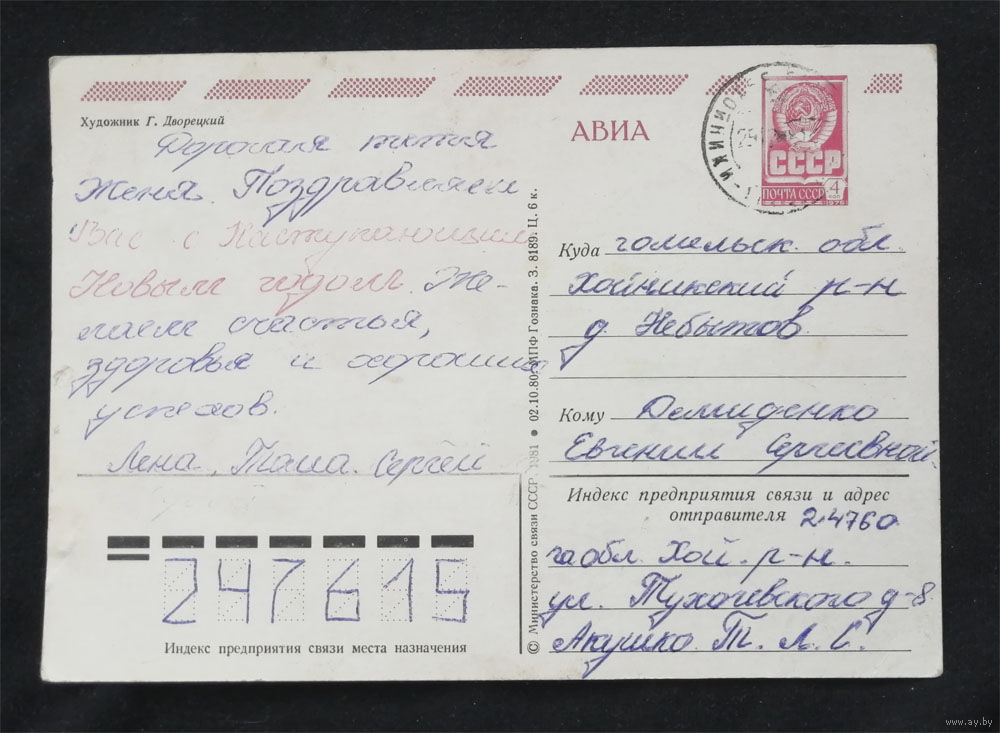 Художник Г. Дворецкий
АВИА
СССР
ПОЧТА СССР
4
КОП
1978
Дорогая тетя
Женя. Поздравляем
Вас с Наступающим
Новым годом. Же-
лаем счастья,
здоровья и хороших
успехов.
Лена. Таша. Сергей
Куда гомельск. обл.
Хойникский р-н
д. Небытов
Кому Демиденко
Евгении Сергеевной
Индекс предприятия связи и адрес
отправителя 24760
обл. Хой. р-н.
ул. Тухачевского д-8
Акушко Т. Л. С.
247615
Индекс предприятия связи места назначения
© Министерство связи СССР. 1981 ● 02.10.80. МПФ Гознака. З. 8189. Ц. 6 к.
www.ay.by